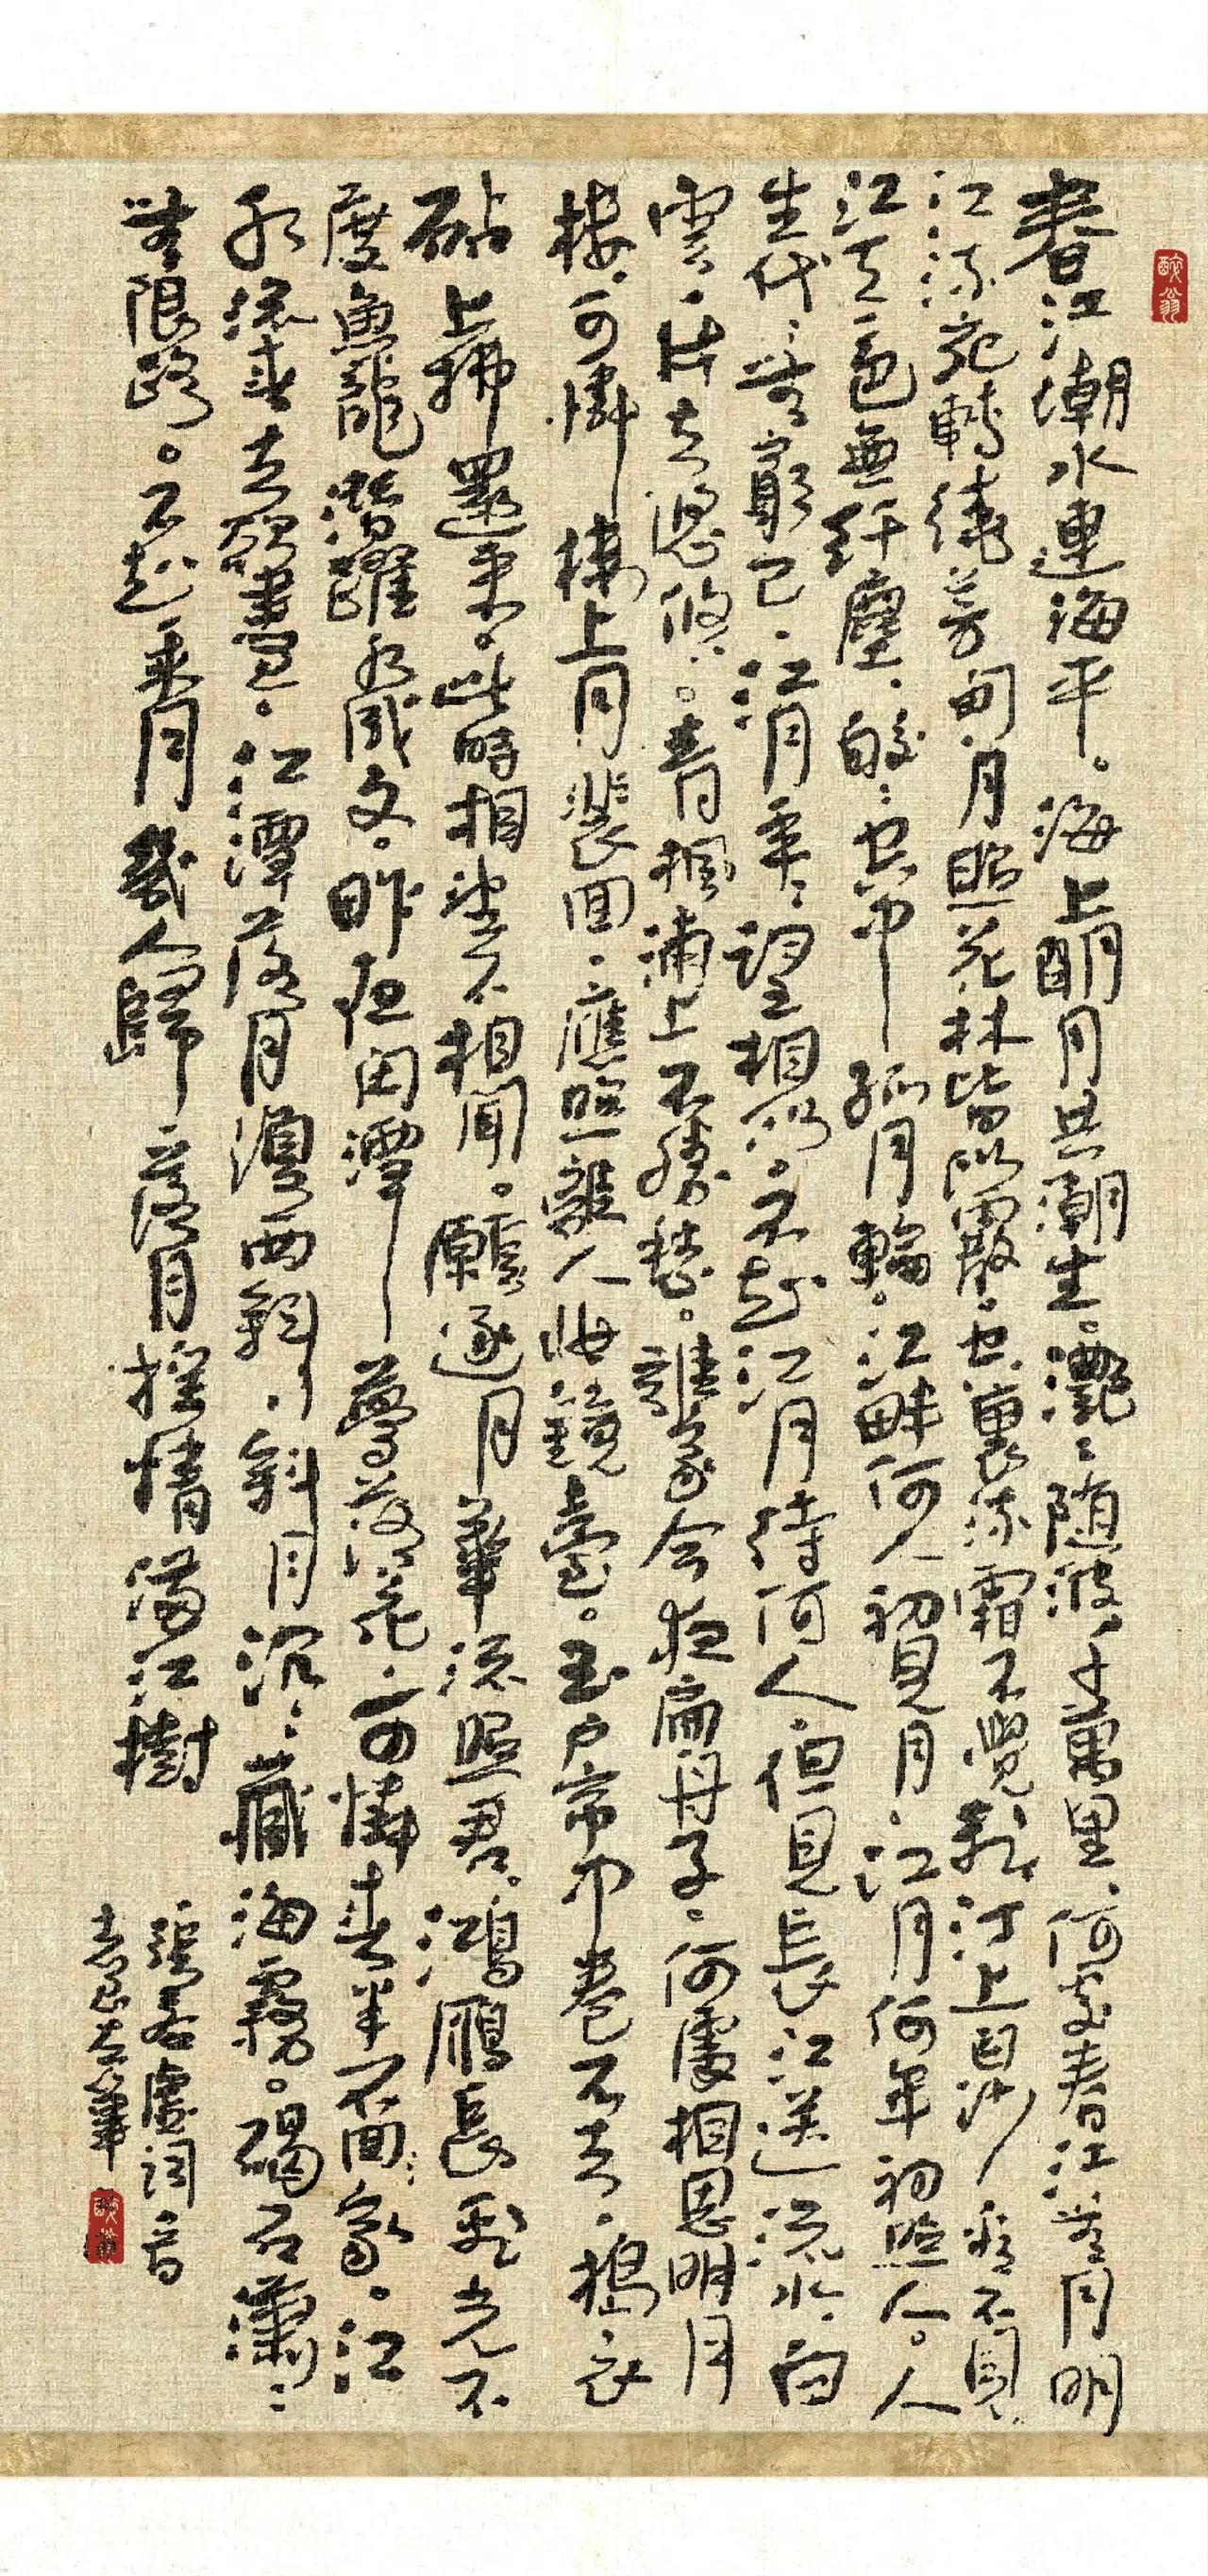 醉翁
春江潮水連海平。海上明月共潮生。灧〻随波千萬里、何處春江無月明
江流宛轉繞芳甸、月照花林皆似霰。空裏流霜不覺飛、汀上白沙看不見、
江天一色無纤塵、皎〻空中孤月輪。江畔何人初見月、江月何年初照人。人
生代〻無窮已、江月年〻望相似、不知江月待何人、但見長江送流水、白
雲一片去悠悠〻。青楓浦上不勝愁。誰家今夜扁舟子、何處相思明月
樓、可憐樓上月裴回、應照離人妝鏡臺。玉户帘中卷不去、搗衣
砧上拂還来。此時相望不相聞。願逐月華流照君、鴻雁長飛光不
度魚龍潛躍水成文。昨夜闲潭夢落花、可憐春半不回家。江
水流春去欲盡、江潭落月復西斜、斜月沉〻藏海霧。碣石瀟〻
無限路。不知乘月幾人歸、落月摇情滿江樹
張若虛詞
醉翁